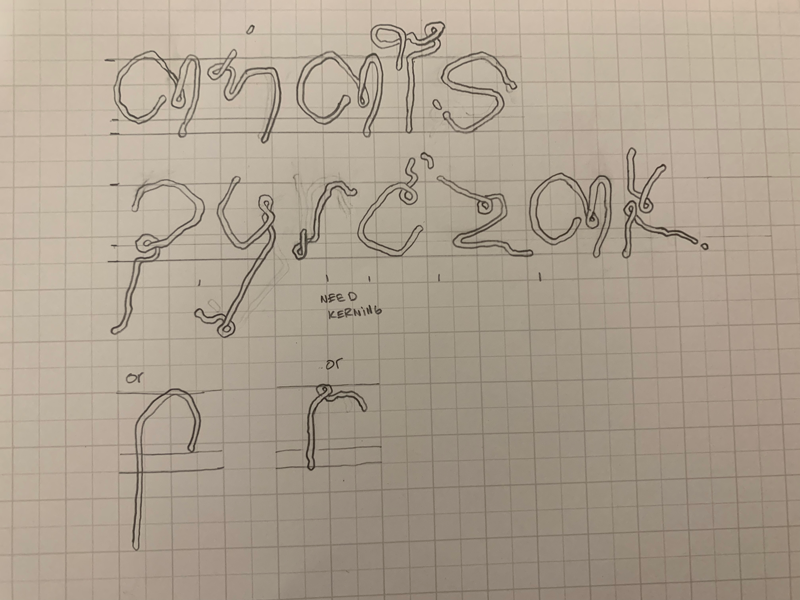 anais
pyrczak.
NEED
KERNiNG
or or
p r